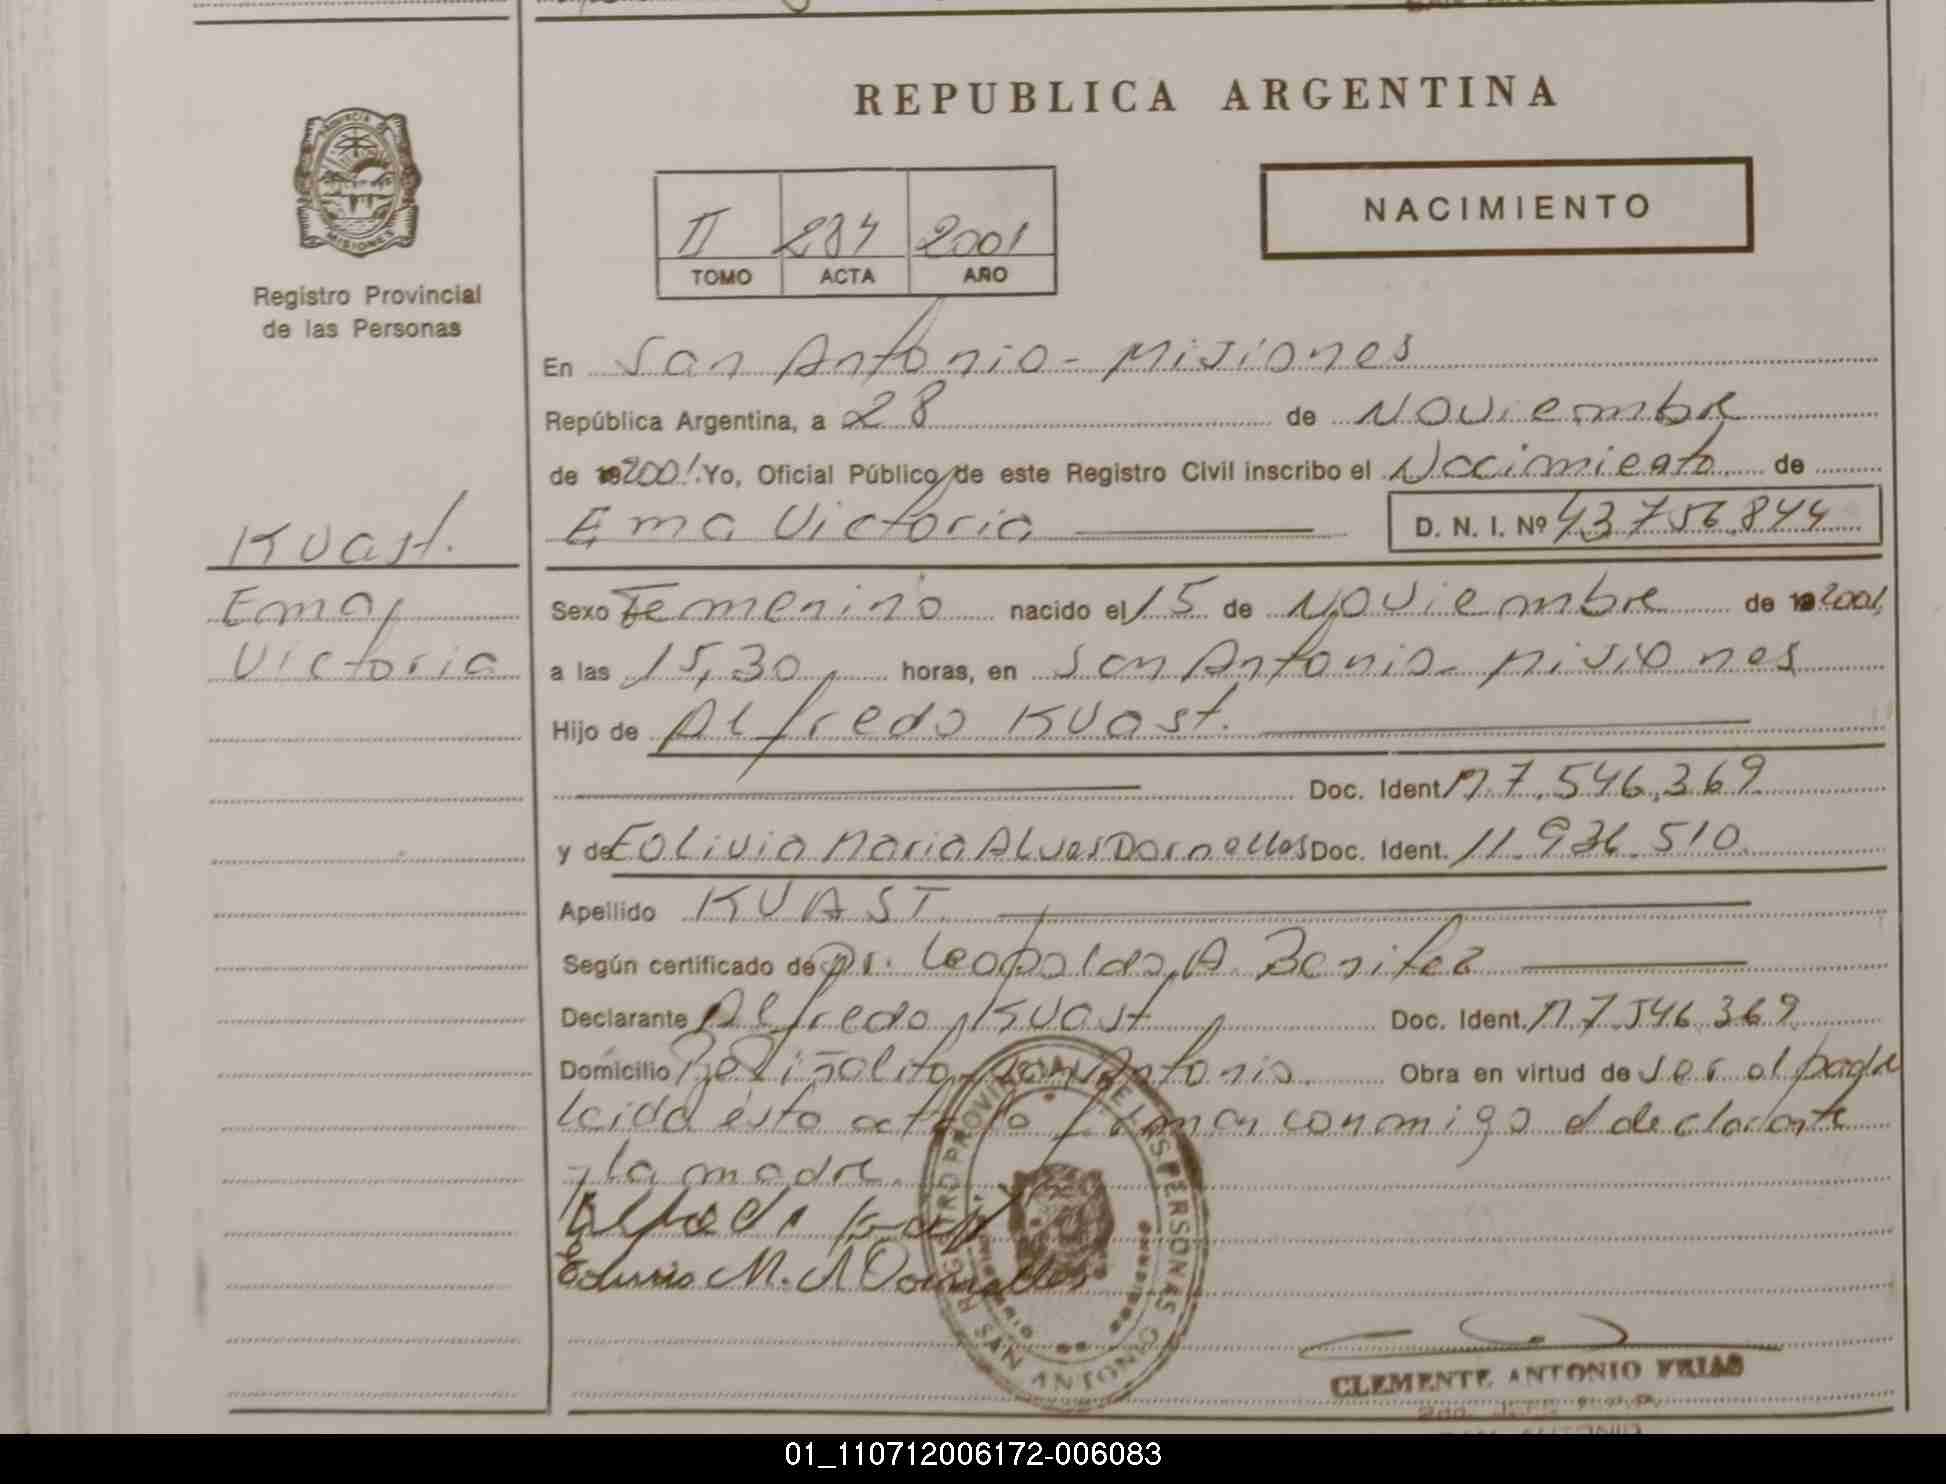 REPUBLICA ARGENTINA
PROVINCIA DE
MISIONES
Registro Provincial
de las Personas
II 284 2001
TOMO ACTA AÑO
NACIMIENTO
En San Antonio - Misiones
República Argentina, a 28 de Noviembre
de 19 2001. Yo, Oficial Público de este Registro Civil inscribo el Nacimiento de
Kuast.
Ema Victoria D. N. I. Nº 43.756.844
Ema
Victoria
Sexo Femenino nacido el 15 de Noviembre de 19 2001,
a las 15,30 horas, en San Antonio - Misiones
Hijo de Alfredo Kuast.
Doc. Ident. M 7.546.369
y de Eolivia Maria Alves Dornelles Doc. Ident. 11.936.510
Apellido KUAST
Según certificado de Dr. Leopoldo A. Benitez
Declarante Alfredo Kuast Doc. Ident. M 7.546.369
Domicilio Piñalito San Antonio. Obra en virtud de ser el padre
leida ésta acta la firman conmigo el declarante
y la madre.
M. A Dornelles
REGISTRO PROVINCIAL DE LAS PERSONAS
SAN ANTONIO
CLEMENTE ANTONIO FRIAS
01_110712006172-006083